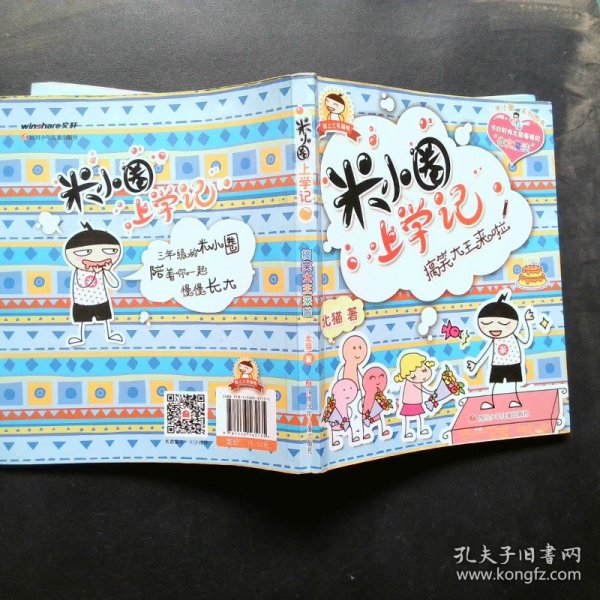 winshare文轩
四川少年儿童出版社
米小圈
上学记
三年级的米小圈
陪着你一起
慢慢长大
定价:
米小圈
上学记
搞笑大王来啦
北猫 著
米小圈
上学记
搞笑大王来啦
北猫 著
四川少年儿童出版社
孔夫子旧书网
www.kongfz.com